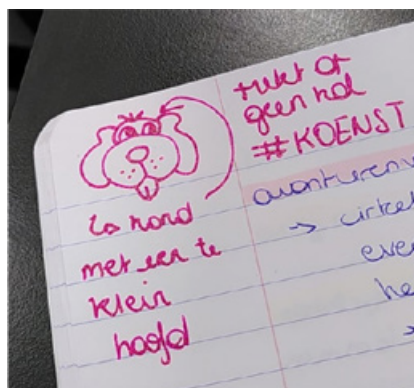 trekt op
geen hol
#KOENST
↳ hond
met een te
klein
hoofd
avonturen
→ cirkel
even
he